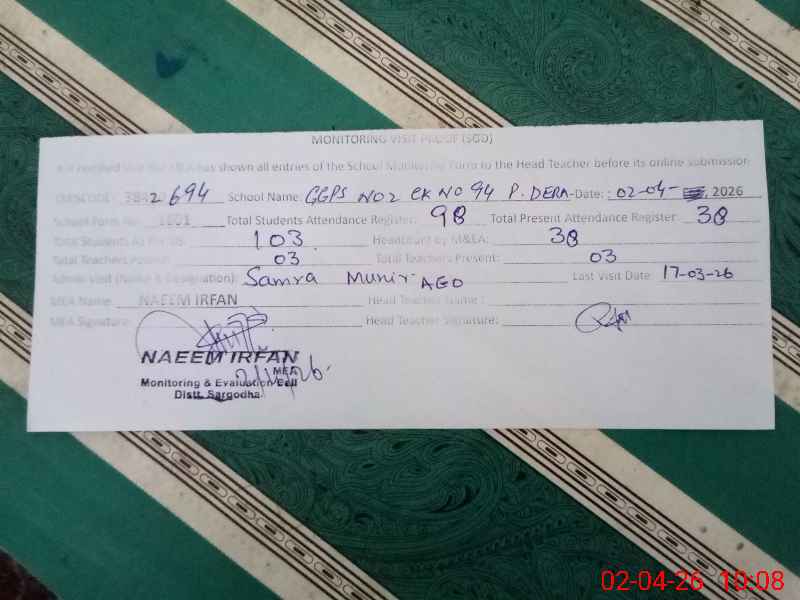 MONITORING VISIT PROOF (SGD)
has shown all entries of the School Monitoring Form to the Head Teacher before its online submission
EMISCODE: 38422694 School Name: GGPS NO2 CK NO 94 P. DERA Date: 02-04- 2026
School Form No: Total Students Attendance Register: 98 Total Present Attendance Register: 38
Total Students As Per SIS: 103 Headcount by M&EA: 38
Total Teachers Posted: 03 Total Teachers Present: 03
Admin Visit (Name & Designation): Samra Munir AEO Last Visit Date: 17-03-26
MEA Name: NAEEM IRFAN Head Teacher Name:
MEA Signature: Head Teacher Signature:
NAEEM IRFAN
MEA
Monitoring & Evaluation Cell
Distt. Sargodha.
02-04-26 10:08